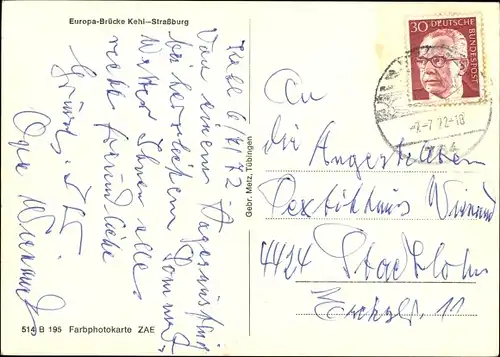 Europa-Brücke Kehl–Straßburg
Kehl 6/7 72
Von einem Tagesausflug
bei herrlichem Sommer-
Wetter Ihnen alle
recht freundliche
Grüsse
Gebr. Metz, Tübingen
514 B 195 Farbphotokarte ZAE
30 DEUTSCHE BUNDESPOST
-7.72-18
An
die Angestellten
Textilhaus Wienand
4424 Stadtlohn
11